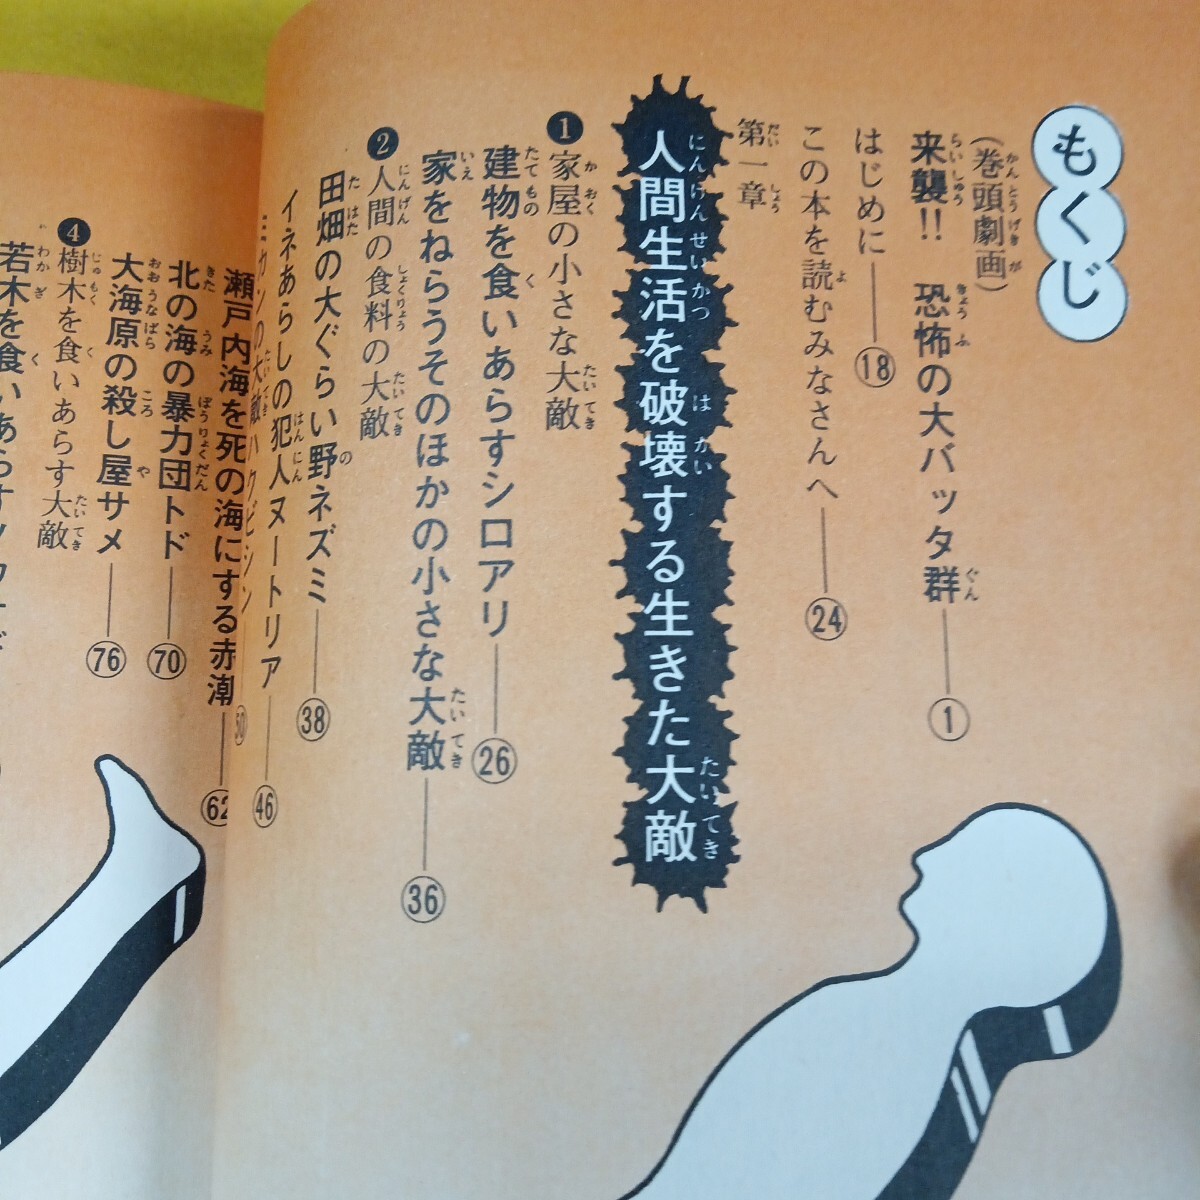 もくじ
(巻頭劇画)
来襲!! 恐怖の大バッタ群――①
はじめに――⑱
この本を読むみなさんへ――㉔
第一章
人間生活を破壊する生きた大敵
❶家屋の小さな大敵
建物を食いあらすシロアリ――㉖
家をねらうそのほかの小さな大敵――㊱
❷人間の食料の大敵
田畑の大ぐらい野ネズミ――㊳
イネあらしの犯人ヌートリア――㊻
カンの大敵ハクビシン――㊿
瀬戸内海を死の海にする赤潮――62
北の海の暴力団トド――70
大海原の殺し屋サメ――76
❹樹木を食いあらす大敵
若木を食いあらす